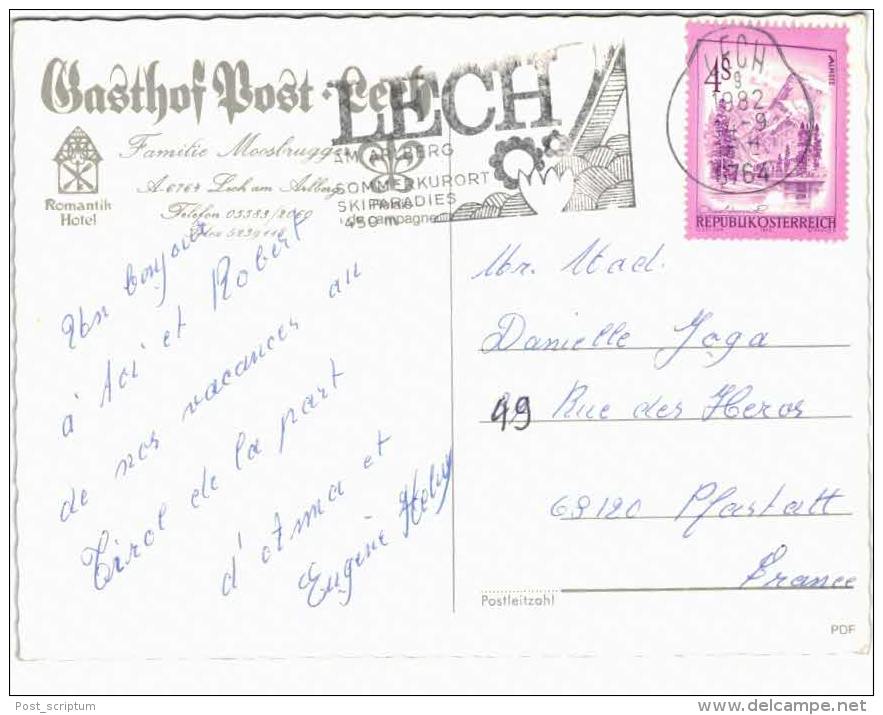 Gasthof Post · Lech
Familie Moosbrugger
A-6764 Lech am Arlberg
Telefon 05583/2060
Telex 5239118
Romantik
Hotel
Relais
de campagne
LECH
AM ARLBERG
SOMMERKURORT
SKIPARADIES
1450 m
LECH
9
1982
6764
4S
ALMSEE
REPUBLIK ÖSTERREICH
Un bonjour
à toi et Robert
de nos vacances au
Tirol de la part
d'Anna et
Eugène Helug
Mr. Mad.
Danielle Joga
49 Rue des Heros
68120 Pfastatt
France
Postleitzahl
PDF
Post_scriptum
www.delcampe.net